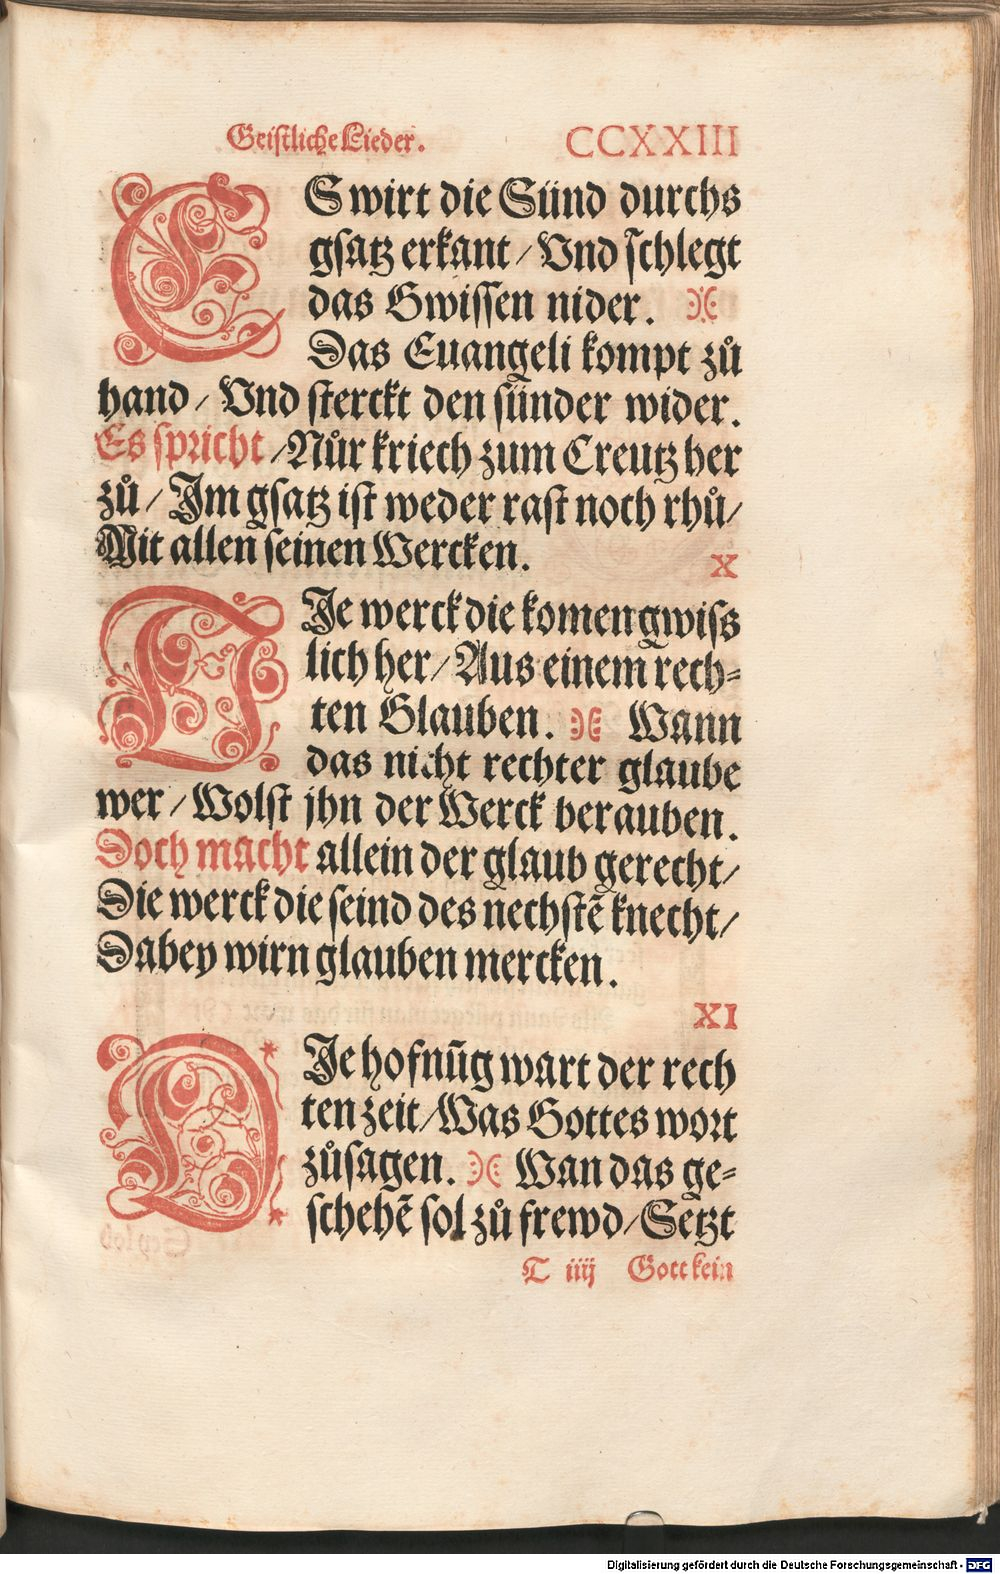 Geistliche Lieder. CCXXIII
ES wirt die Sünd durchs
gsatz erkant / Vnd schlegt
das Gwissen nider.
Das Euangeli kompt zů
hand / Vnd sterckt den sünder wider.
Es spricht / Nůr kriech zum Creutz her
zů / Im gsatz ist weder rast noch rhů /
Mit allen seinen Wercken.
X
DIe werck die komen gwiss
lich her / Aus einem rech=
ten Glauben. Wann
das nicht rechter glaube
wer / Wolst jhn der Werck berauben.
Doch macht allein der glaub gerecht /
Die werck die seind des nechstẽ knecht /
Dabey wirn glauben mercken.
XI
DIe hofnũg wart der rech
ten zeit / Was Gottes wort
zůsagen. Wan das ge=
schehẽ sol zů frewd / Setzt
T iiij Gott kein
Digitalisierung gefördert durch die Deutsche Forschungsgemeinschaft - DFG